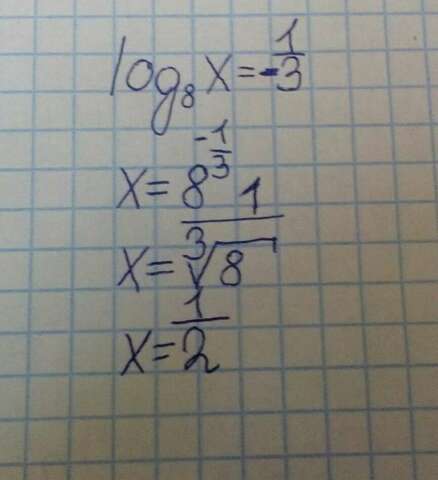 log₈ x = -1/3
x = 8^(-1/3)
x = 1/∛8
x = 1/2